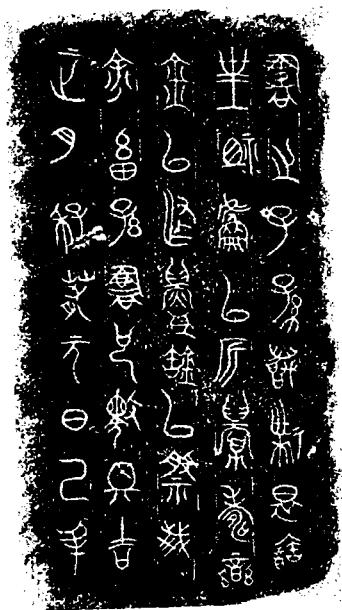 正月季春元日己丑
余畜孫書也擇其吉
金以作鑄缶以祭我
皇祖虘以祈眉壽欒
書之子孫萬世是寶